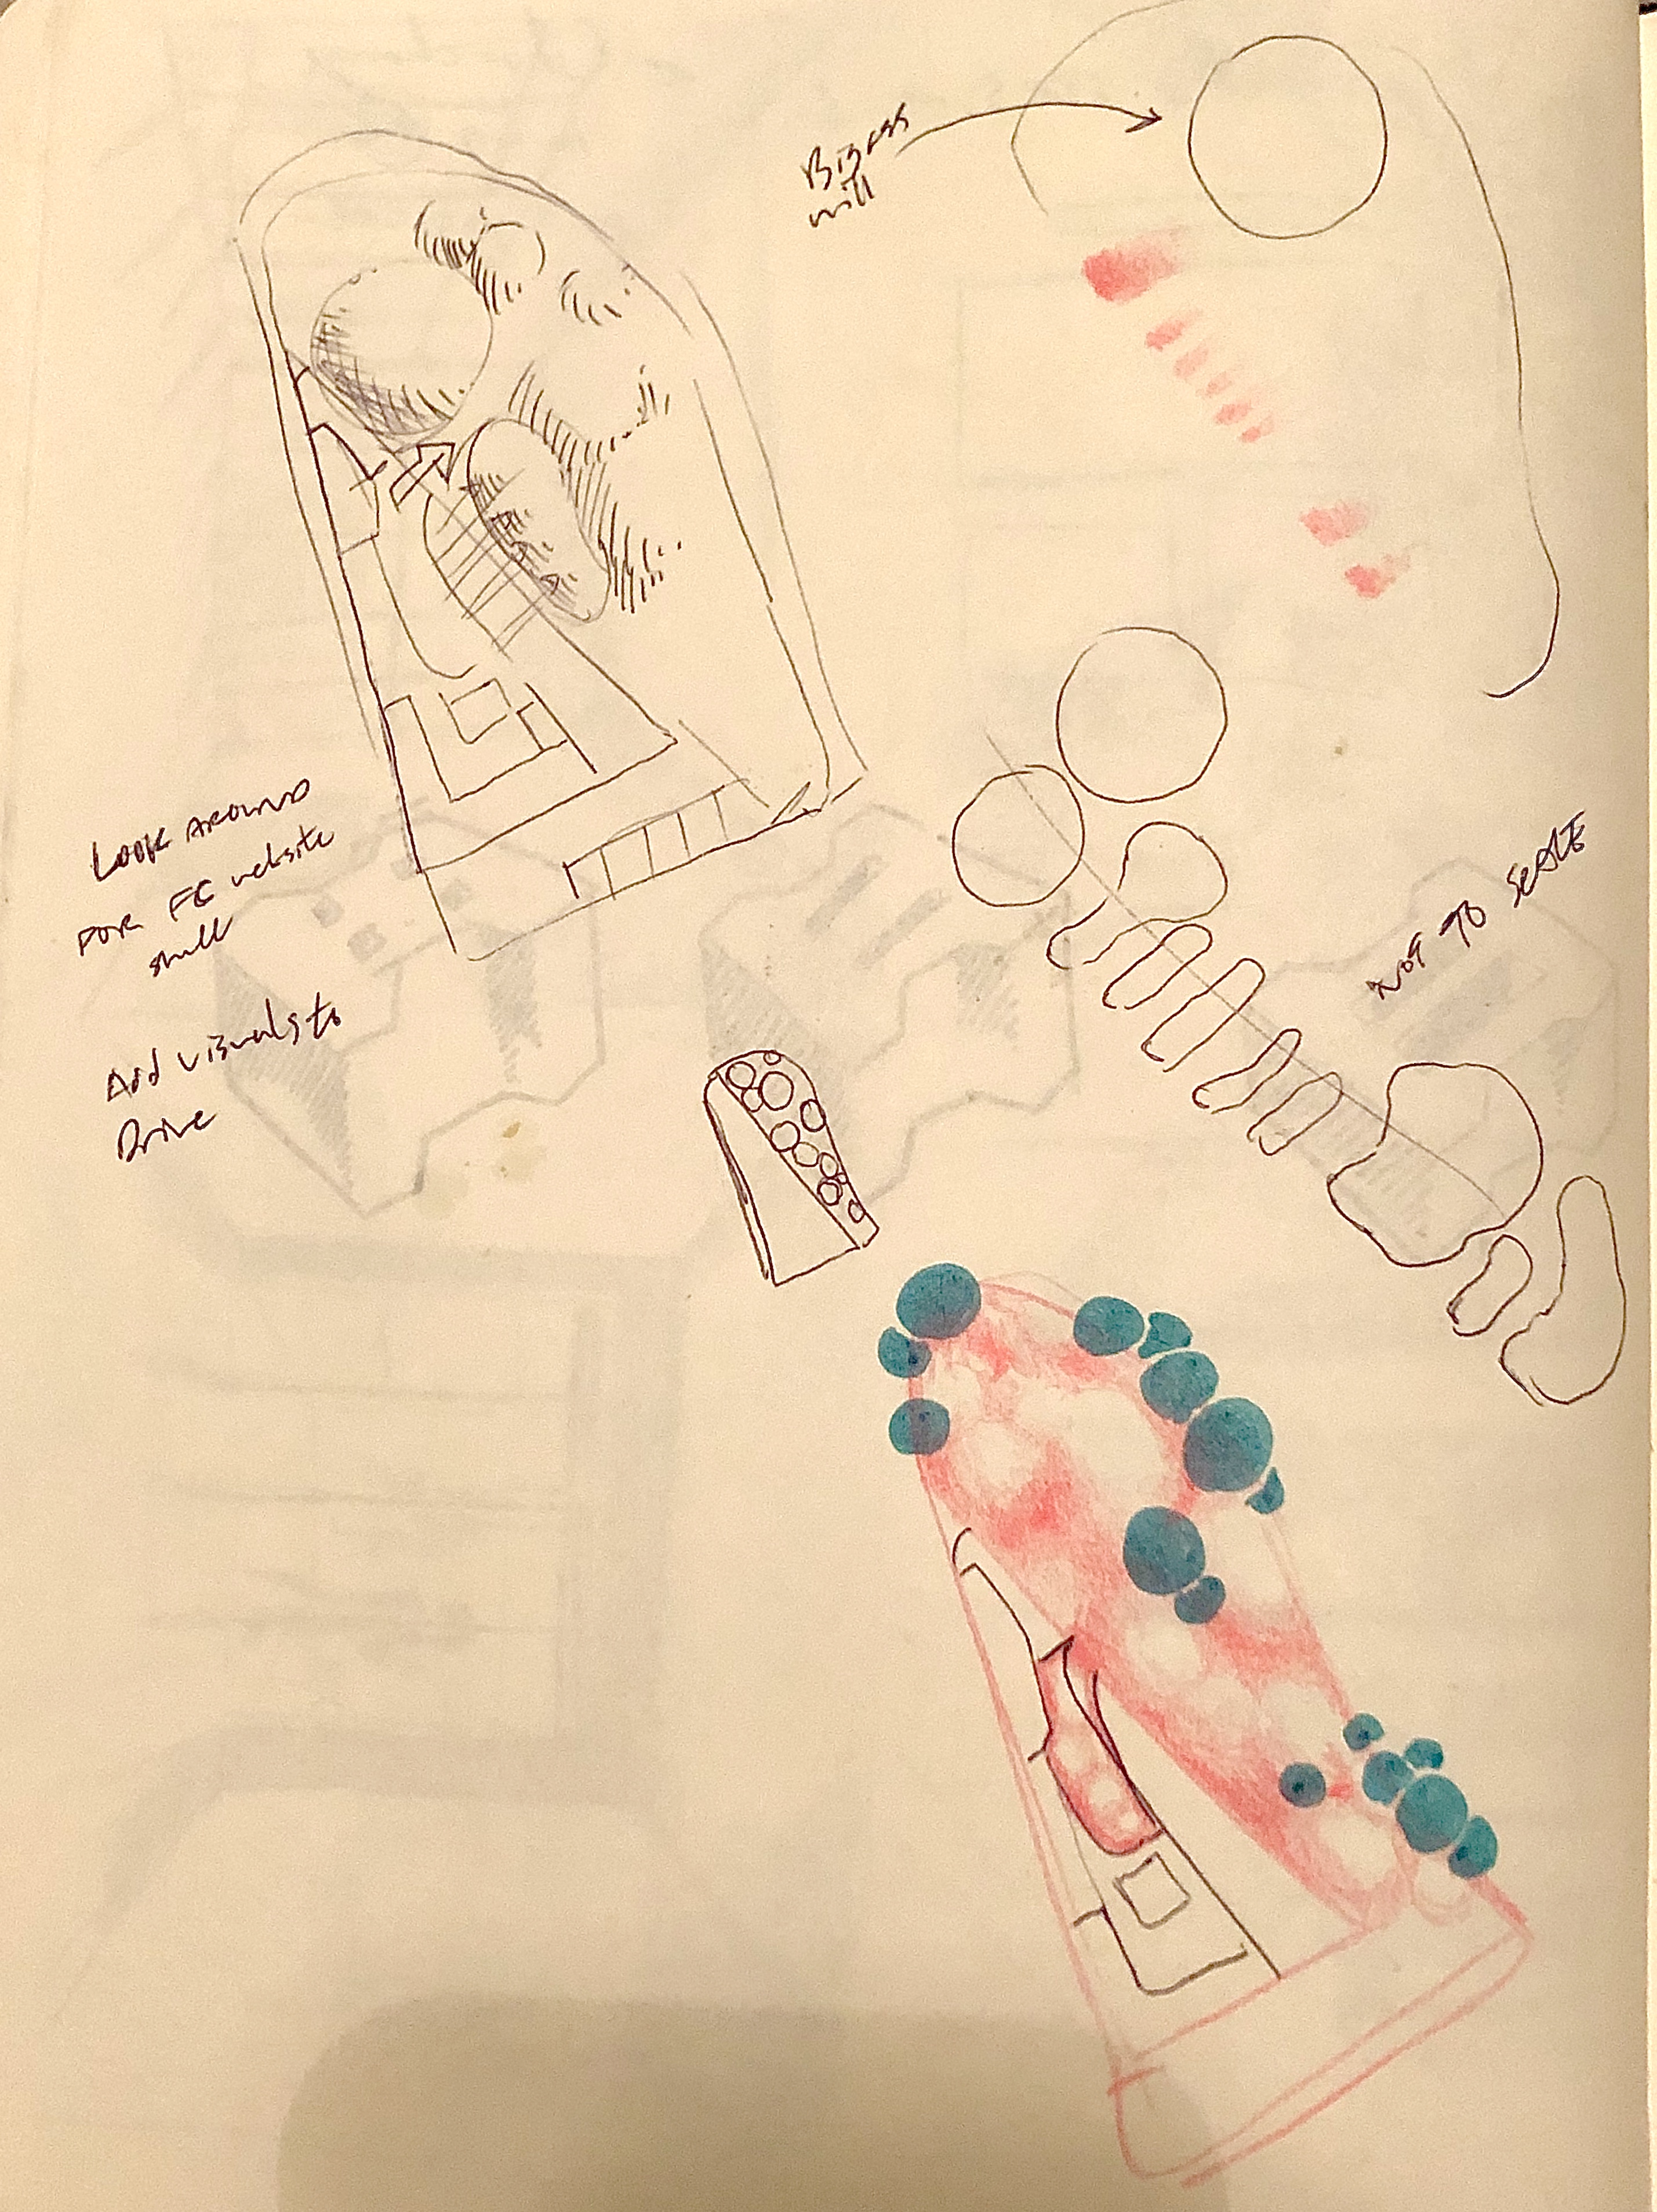 hill
LOOK AROUND
FOR FC website
Add visuals to
Drive
NOT TO SCALE